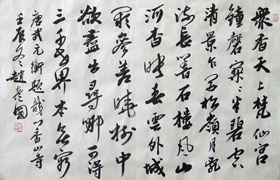 眾香天上梵仙宮
鐘磬寥寥半碧空
清景乍開松嶺月亂
流長響石樓風山
河杳映春雲外城
闕參差樹中
欲盡出尋那可得
三千世界本無窮
唐武元衡題龍門香山寺
壬辰冬趙國